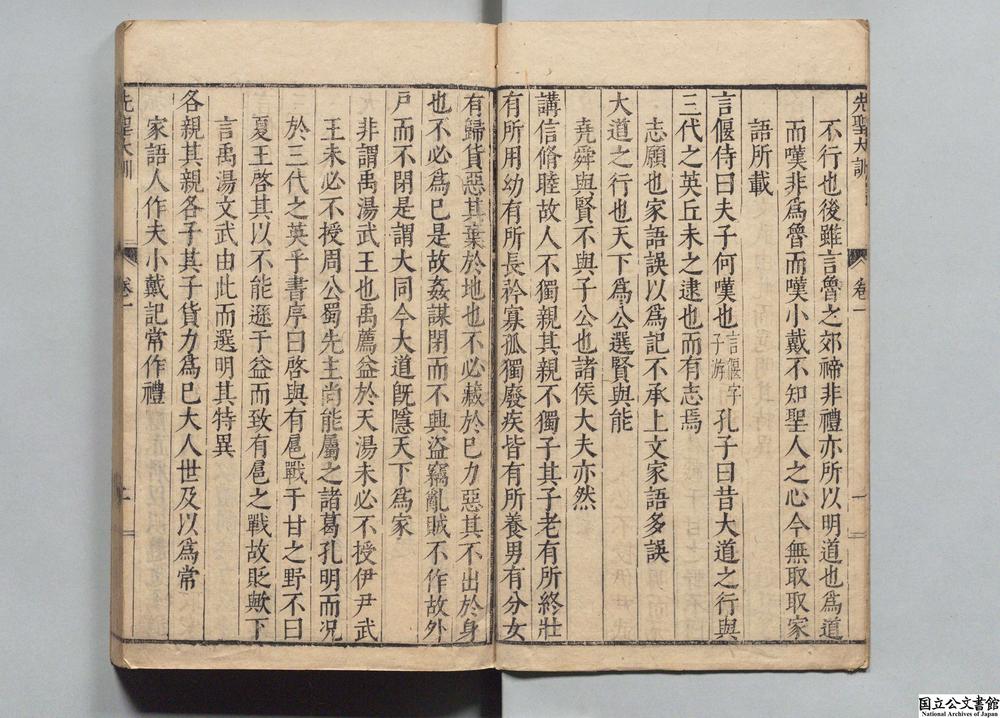 先聖大訓
卷一
一
不行也後雖言魯之郊禘非禮亦所以明道也爲道
而嘆非爲魯而嘆小戴不知聖人之心今無取取家
語所載
言偃侍曰夫子何嘆也言偃字子游孔子曰昔大道之行與
三代之英丘未之逮也而有志焉
志願也家語誤以爲記不承上文家語多誤
大道之行也天下爲公選賢與能
堯舜與賢不與子公也諸侯大夫亦然
講信脩睦故人不獨親其親不獨子其子老有所終壯
有所用幼有所長矜寡孤獨廢疾皆有所養男有分女
有歸貨惡其棄於地也不必藏於已力惡其不出於身
也不必爲已是故姦謀閉而不興盜竊亂賊不作故外
戸而不閉是謂大同今大道旣隱天下爲家
非謂禹湯武王也禹薦益於天湯未必不授伊尹武
王未必不授周公蜀先主尚能屬之諸葛孔明而况
於三代之英乎書序曰啓與有扈戰于甘之野不曰
夏王啓其以不能遜于益而致有扈之戰故貶歟下
言禹湯文武由此而選明其特異
各親其親各子其子貨力爲已大人世及以爲常
家語人作夫小戴記常作禮
先聖大訓
卷一
國立公文書館
National Archives of Japan